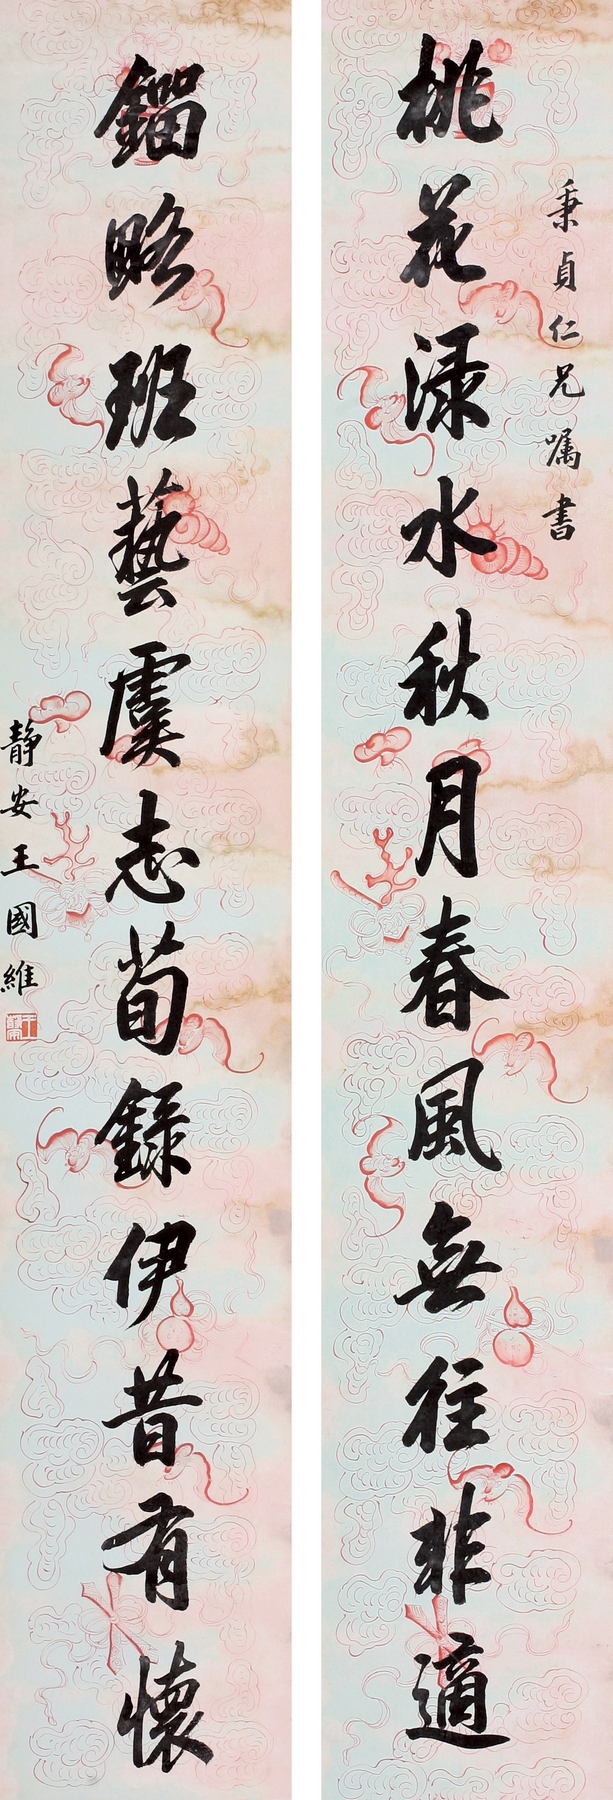 秉貞仁兄嘱書
桃花渌水秋月春風無往非適
鎦略班藝虞志荀録伊昔有懷
静安王國維